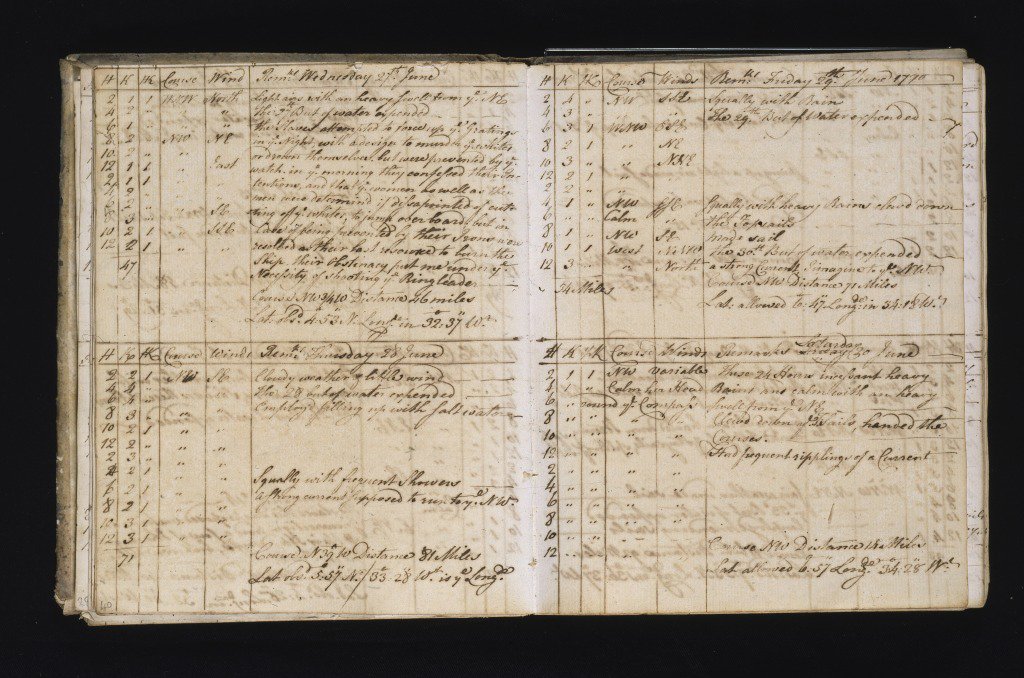 H K HK Course Wind Remks. Wednesday 27th. June
2 1 1 NW North Light airs with an heavy swell from ye. NE
4 2 " the 3d. But of water expended
6 1 1 " the Slaves attempted to force up ye. Gratings
8 2 " NW NE in ye. Night, with a design to murder ye. whites
10 2 " " or drown themselves, but were prevented by ye.
12 1 1 " East watch. in ye. morning they confessed their In
2 1 tentions, and that ye. women as well as the
4 2 men were determin'd if disapointed of cutt
6 2 ing off ye. whites, to jump over board, but in
8 3 " SE Case of being prevented by their Irons were
10 2 1 " SSE resolved as their last resource to burn the
12 2 1 " Ship. their obstinacy put me under ye.
47 Necessity of shooting ye. Ring leader
Course NW 3/4 W Distance 46 miles
Lat. obs. 4°: 52 N. Longe. in 32°: 37 W.
H K HK Course Winds Remks. Thursday 28 June
2 2 1 NW SE Cloudy weather & little wind
4 4 " " The 28 but of water expended
6 4 " " Employ'd filling up with salt water
8 3 " "
10 2 1 " "
12 2 " "
2 3 " "
4 2 1 " " Squally with frequent Showers
6 2 1 " " a strong current supposed to run to ye. NW.
8 2 1 " "
10 3 1 " "
12 3 1 " "
71 Course N 39 W Distance 81 Miles
Lat obs. 5°: 57 N. / 33°: 28 Wt. is ye Longe.
60
H K HK Course Winds Remks. Friday 29th. June 1770
2 4 " NW SSE Squally with Rain
4 3 " " The 29. But of Water expended
6 3 1 WNW ESE
8 2 1 " NE
10 3 " " NNE
12 2 1 "
2 2 " "
4 1 " NW ESE Squally with heavy Rains clew'd down
6 " " Calm the Topsails
8 1 " NW SE made sail
10 1 1 West NNW The 30th. But of water expended
12 3 " " North a strong Current I imagine to ye. NW.
54 Miles Course NW Distance 71 Miles
Lat: allowed 6°: 47 Longe: in 34: 18 W.
Saturday
H K HK Course Winds Remarks Friday 30 June
2 1 1 NW Variable These 24 Hours incessant heavy
4 1 " Calm her Head Rains and calms with an heavy
6 " round ye. Compass Swell from ye. NE
8 " " " " Clew'd down ye. Tsails, handed the
10 " " " " Courses.
12 " " " " Had frequent ripplings of a Current
2 " " " "
4 " " " "
6 " " " "
8 " " " "
10 " " " "
12 " Course NW Distance 14 Miles
Lat. allowed 6: 57 Longe. 34: 28 W.